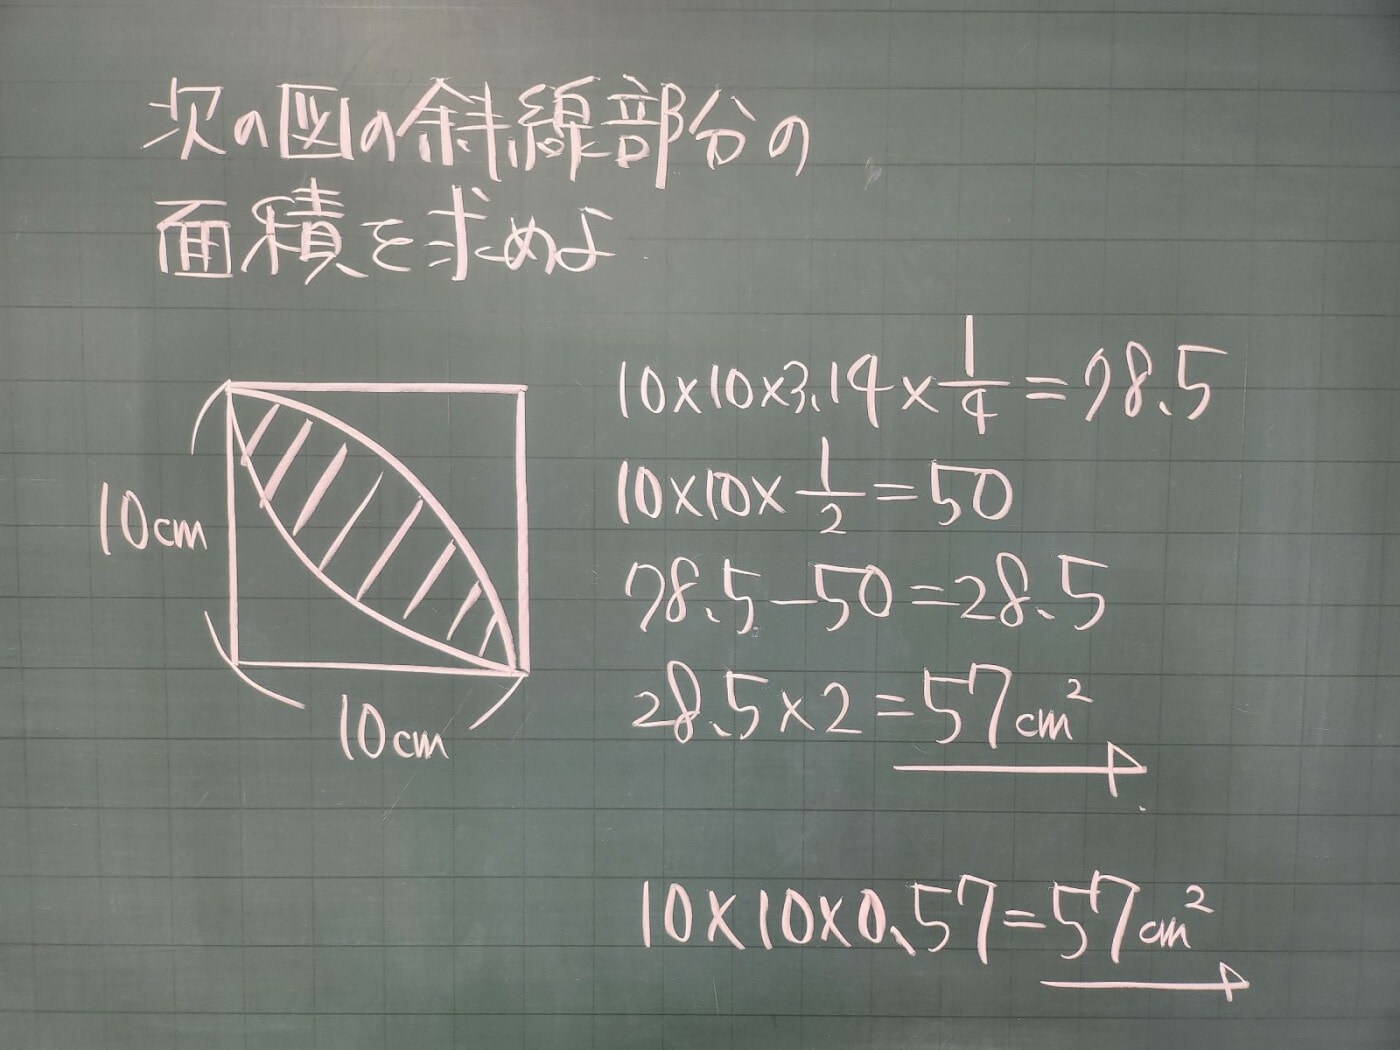 次の図の斜線部分の
面積を求めよ
10cm
10cm
10×10×3.14×1/4=78.5
10×10×1/2=50
78.5-50=28.5
28.5×2=57cm²
10×10×0.57=57cm²